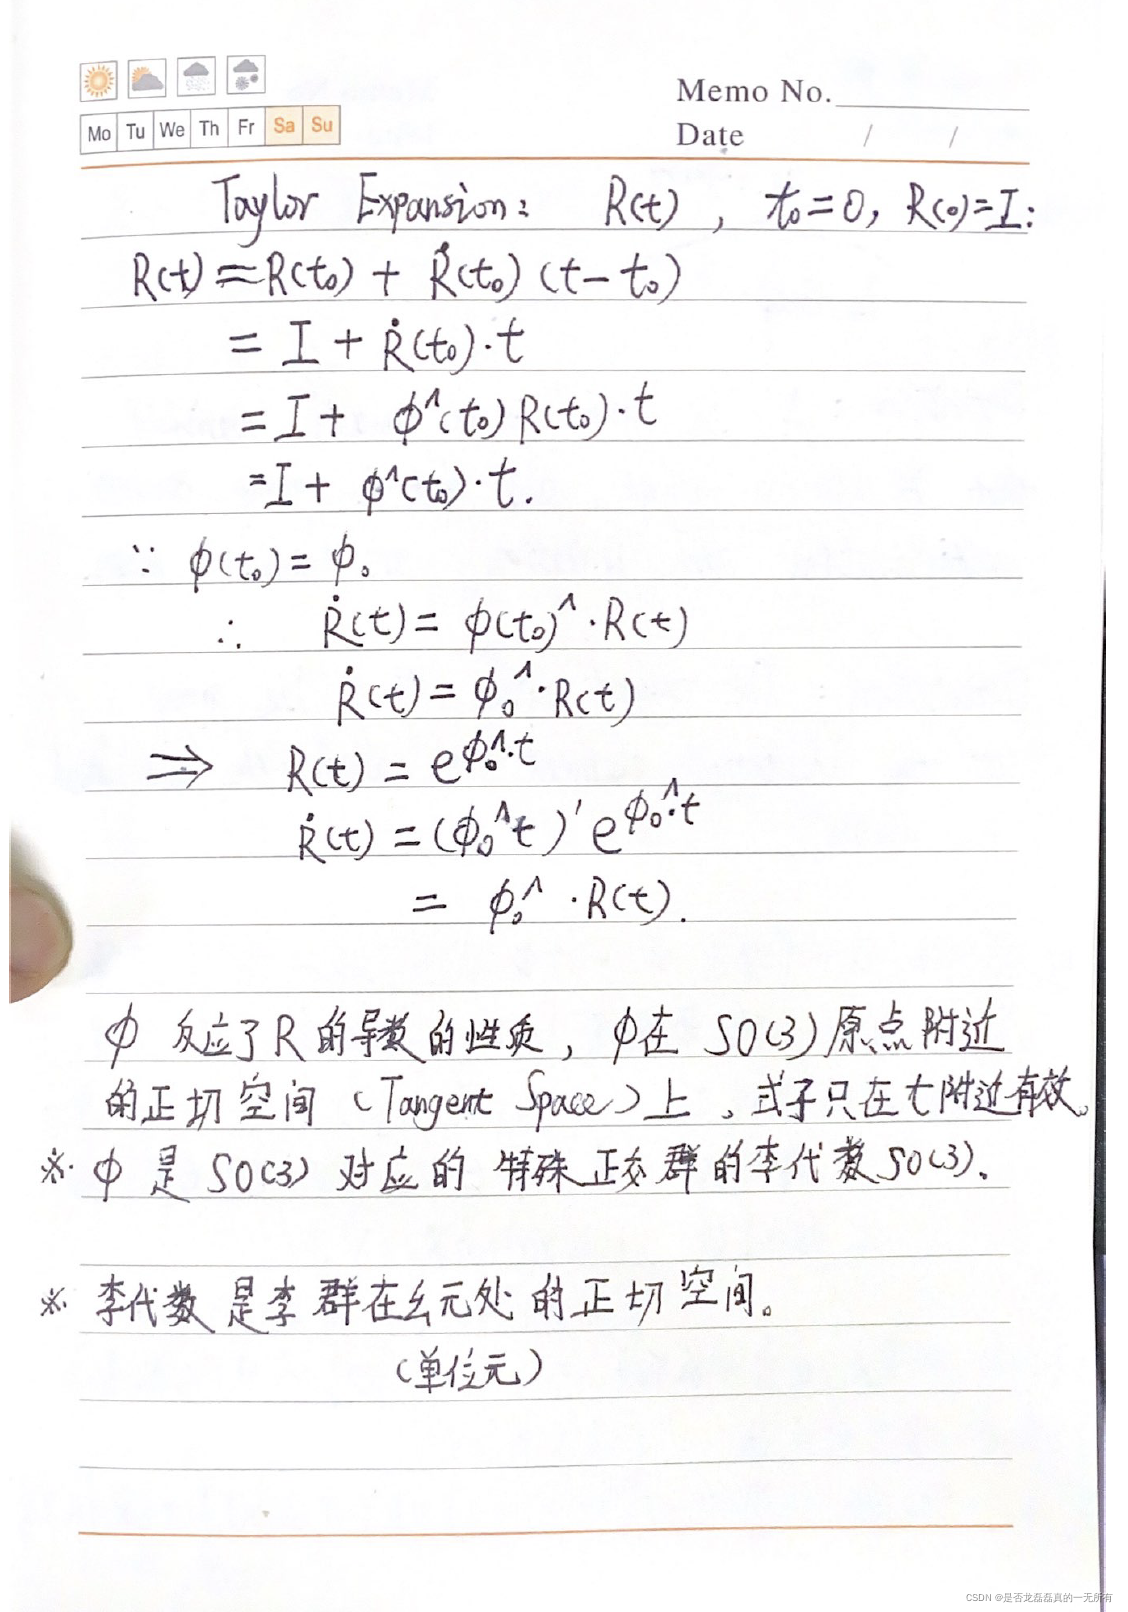 Memo No.
Mo Tu We Th Fr Sa Su
Date / /
Taylor Expansion: R(t), t₀=0, R(0)=I:
R(t)≈R(t₀) + Ṙ(t₀)(t-t₀)
= I + Ṙ(t₀)·t
= I + φ^(t₀)R(t₀)·t
= I + φ^(t₀)·t.
∵ φ(t₀) = φ₀
∴ Ṙ(t) = φ(t₀)^·R(t)
Ṙ(t) = φ₀^·R(t)
⇒ R(t) = e^{φ₀^·t}
Ṙ(t) = (φ₀^t)' e^{φ₀^·t}
= φ₀^·R(t).
φ 反应了R的导数的性质, φ在 SO(3)原点附近
的正切空间 (Tangent Space)上, 式子只在t附近有效。
※· φ 是 SO(3) 对应的 特殊正交群的李代数SO(3).
※· 李代数是李群在幺元处的正切空间。
(单位元)
CSDN @是否龙磊磊真的一无所有